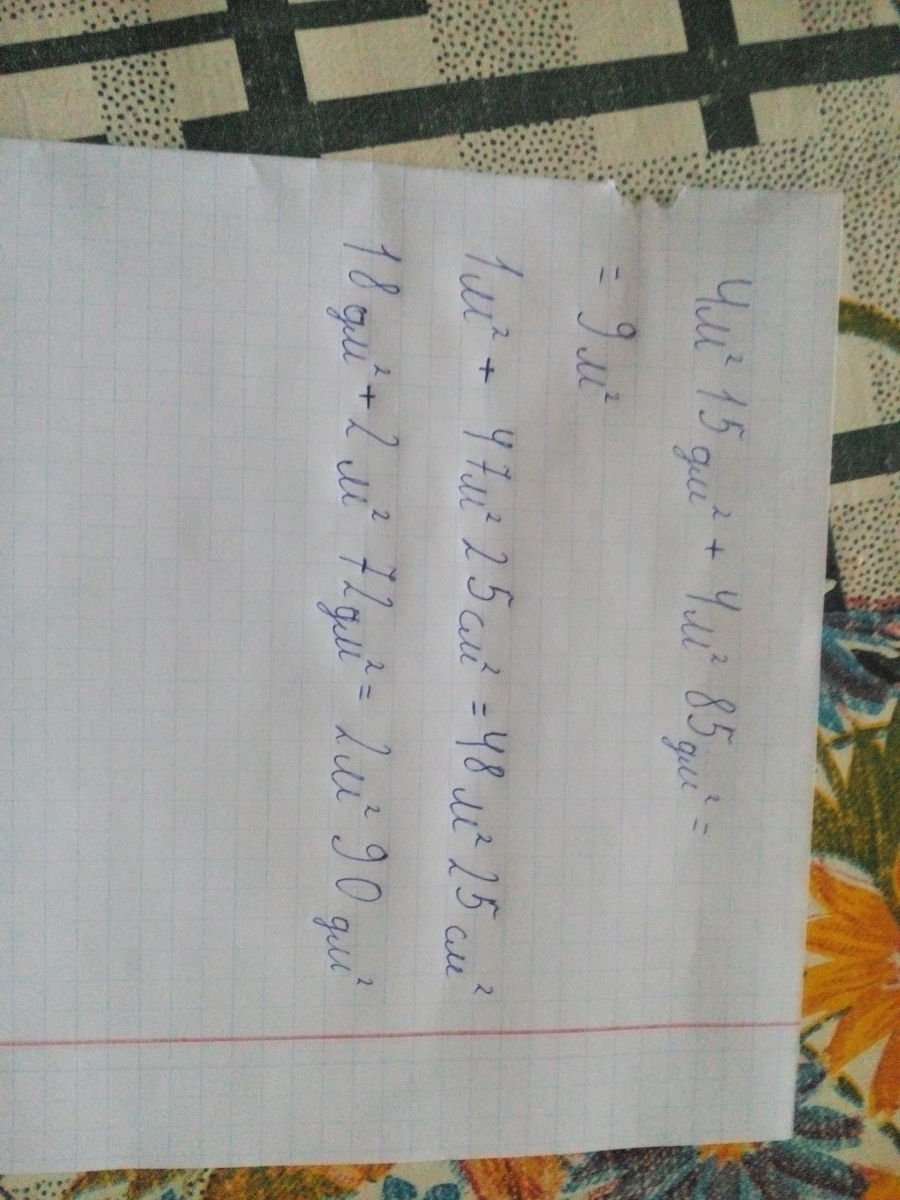 4м² 15дм² + 4м² 85дм² =
= 9м²
1м² + 47м² 25см² = 48м² 25см²
18дм² + 2м² 72дм² = 2м² 90дм²